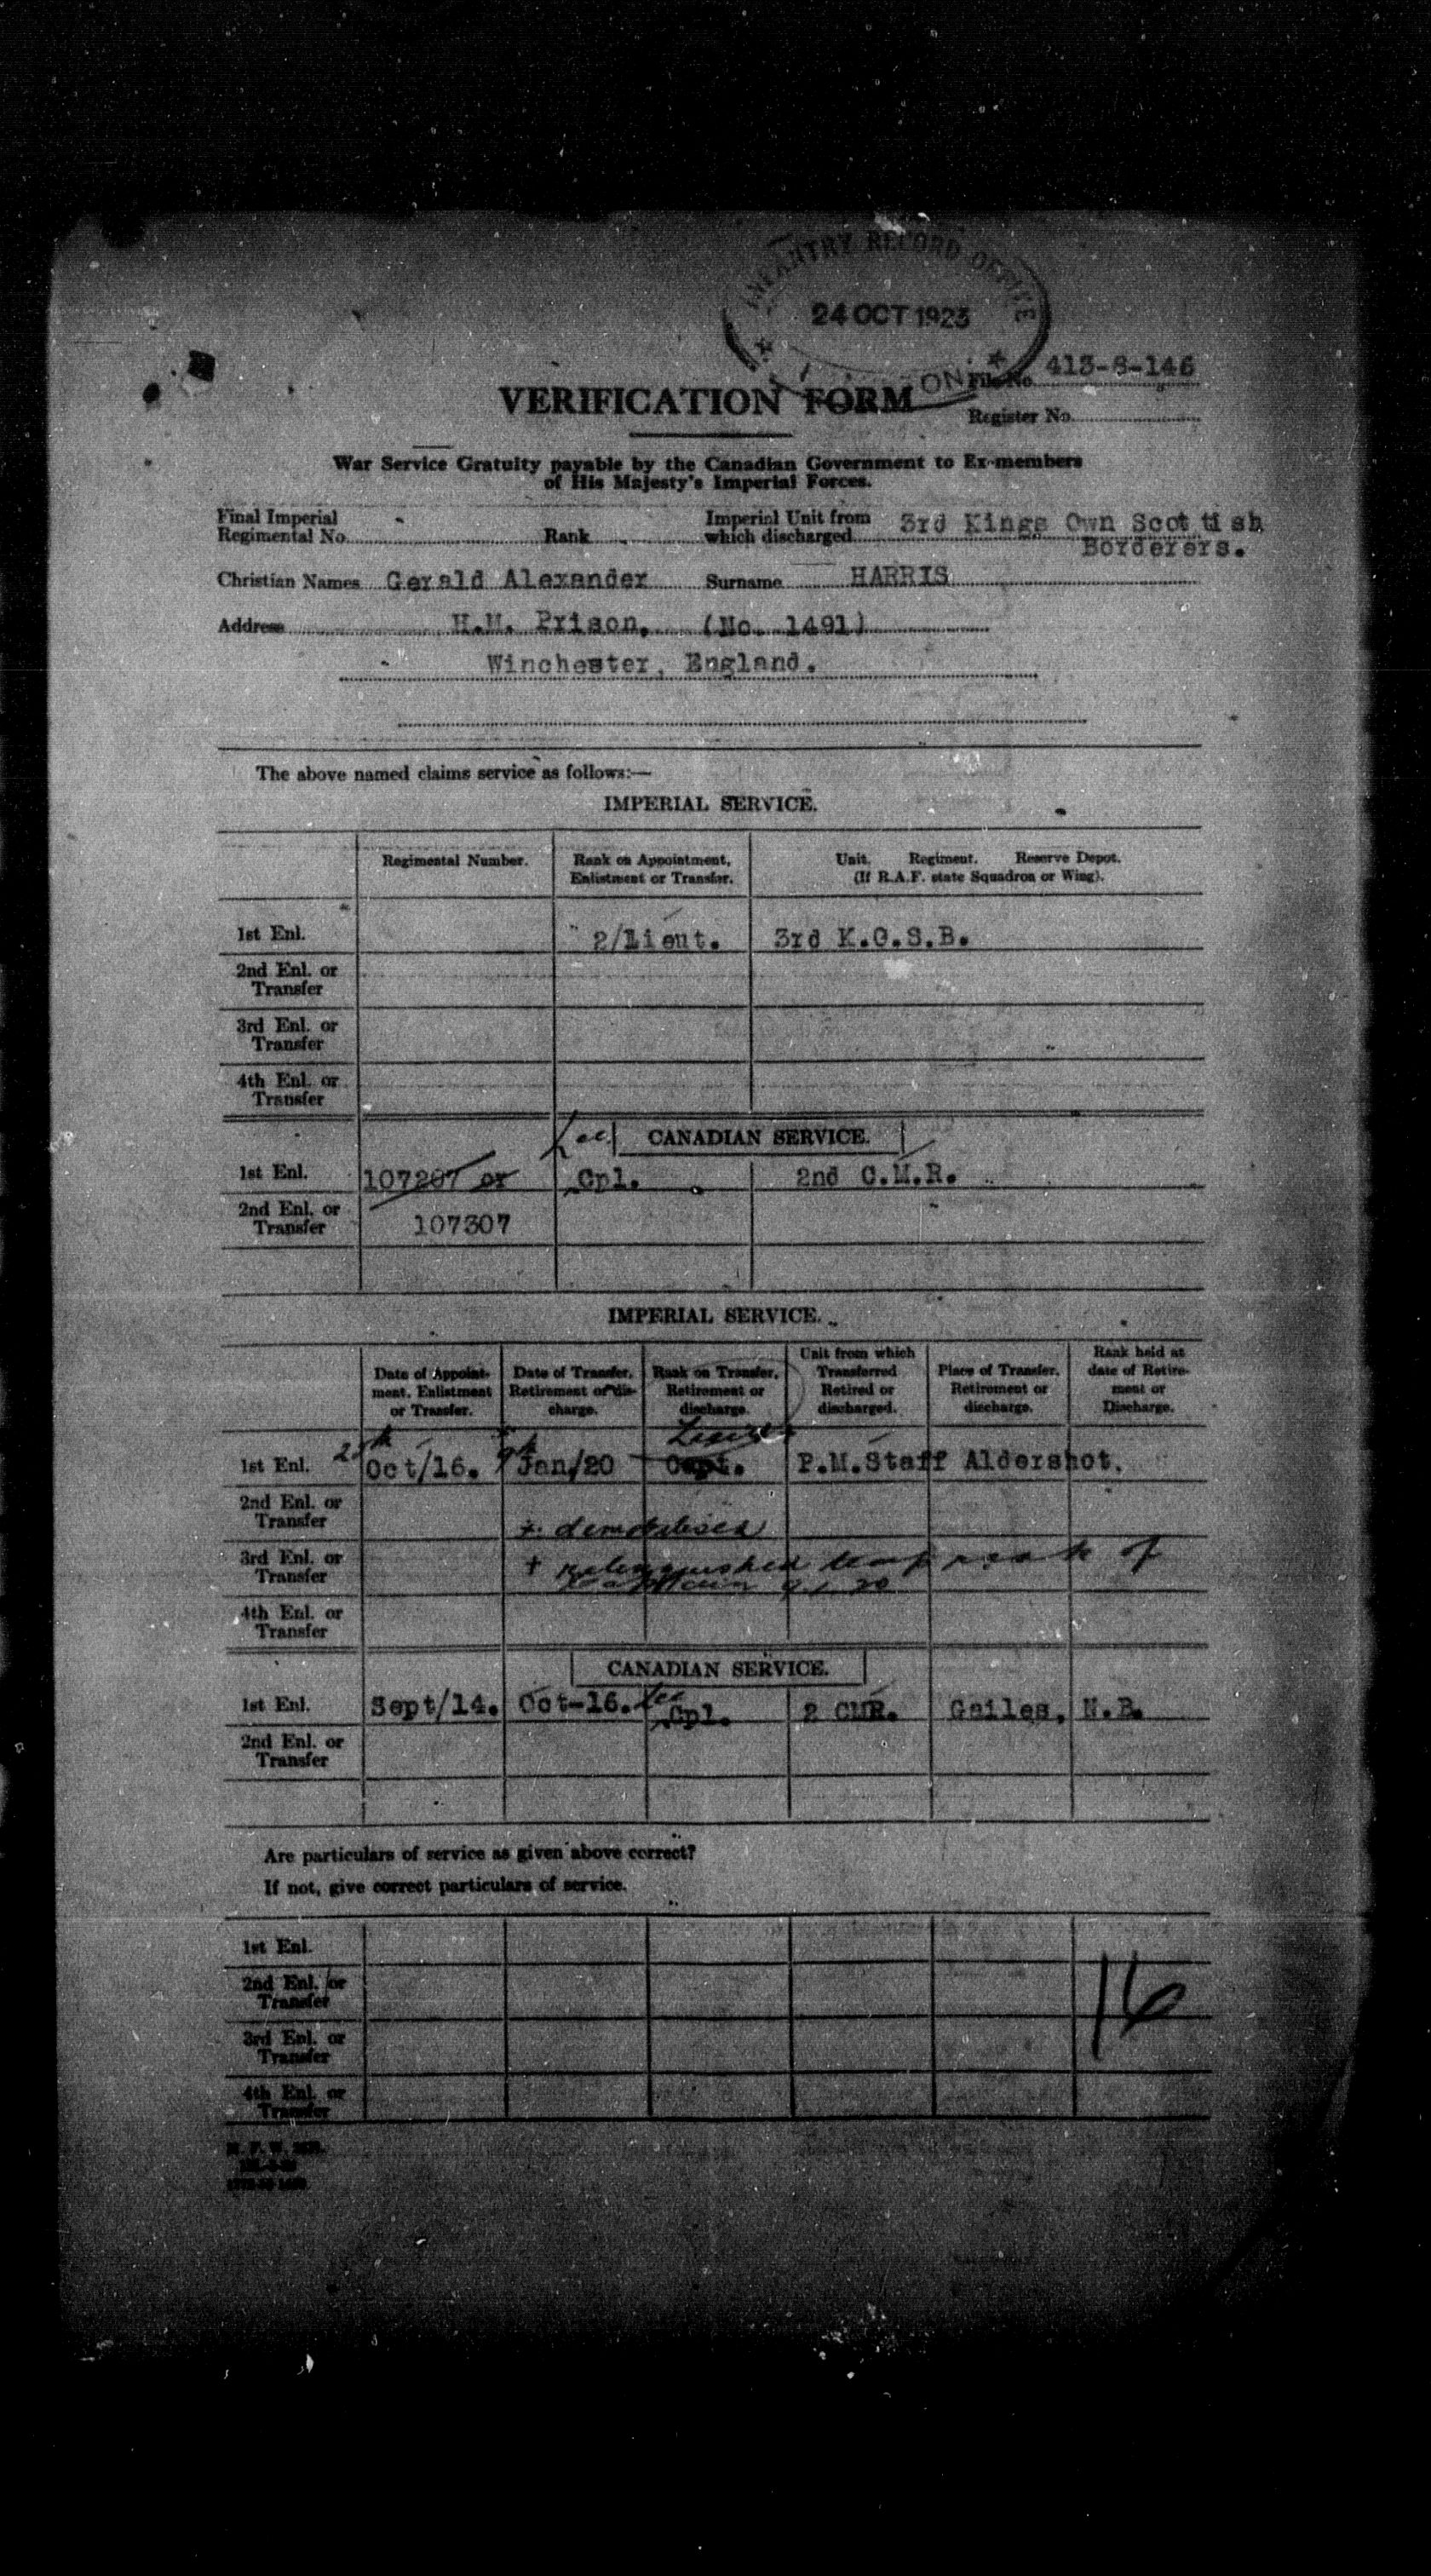 INFANTRY RECORD OFFICE
24 OCT 1923
File No. 413-8-146
VERIFICATION FORM
Register No.
War Service Gratuity payable by the Canadian Government to Ex-members
of His Majesty's Imperial Forces.
Final Imperial Regimental No. Rank Imperial Unit from which discharged 3rd Kings Own Scottish
Borderers.
Christian Names Gerald Alexander Surname HARRIS
Address H.M. Prison, (No. 1491)
Winchester, England.
The above named claims service as follows:—
IMPERIAL SERVICE.
Regimental Number. Rank on Appointment, Enlistment or Transfer. Unit. Regiment. Reserve Depot. (If R.A.F. state Squadron or Wing).
1st Enl. 2/Lieut. 3rd K.O.S.B.
2nd Enl. or Transfer
3rd Enl. or Transfer
4th Enl. or Transfer
CANADIAN SERVICE.
1st Enl. 107207 or Cpl. 2nd C.M.R.
2nd Enl. or Transfer 107307
IMPERIAL SERVICE.
Date of Appointment, Enlistment or Transfer. Date of Transfer, Retirement or discharge. Rank on Transfer, Retirement or discharge. Unit from which Transferred Retired or discharged. Place of Transfer, Retirement or discharge. Rank held at date of Retirement or Discharge.
1st Enl. 25th Oct/16. 9th Jan/20 Capt. P.M.Staff Aldershot.
2nd Enl. or Transfer
+ demobilised
3rd Enl. or Transfer + relinquished temp rank of
Captain 9.1.20
4th Enl. or Transfer
CANADIAN SERVICE.
1st Enl. Sept/14. Oct-16. Cpl. 2 CMR. Gailes, N.B.
2nd Enl. or Transfer
Are particulars of service as given above correct?
If not, give correct particulars of service.
1st Enl.
2nd Enl. or Transfer
16
3rd Enl. or Transfer
4th Enl. or Transfer